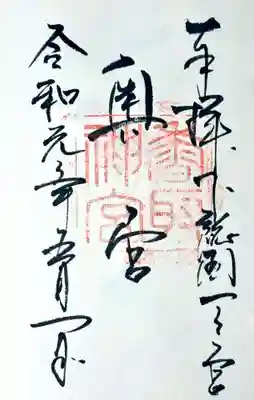 奉拝 下総国一之宮
奥宮
香取神宮
令和元年五月一日